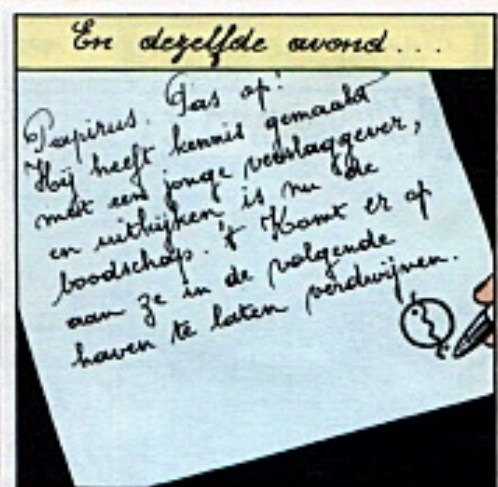 En dezelfde avond...
Papirus. Pas op!
Hij heeft kennis gemaakt
met een jonge verslaggever,
en uitkijken is nu de
boodschap. 't Komt er op
aan ze in de volgende
haven te laten verdwijnen.